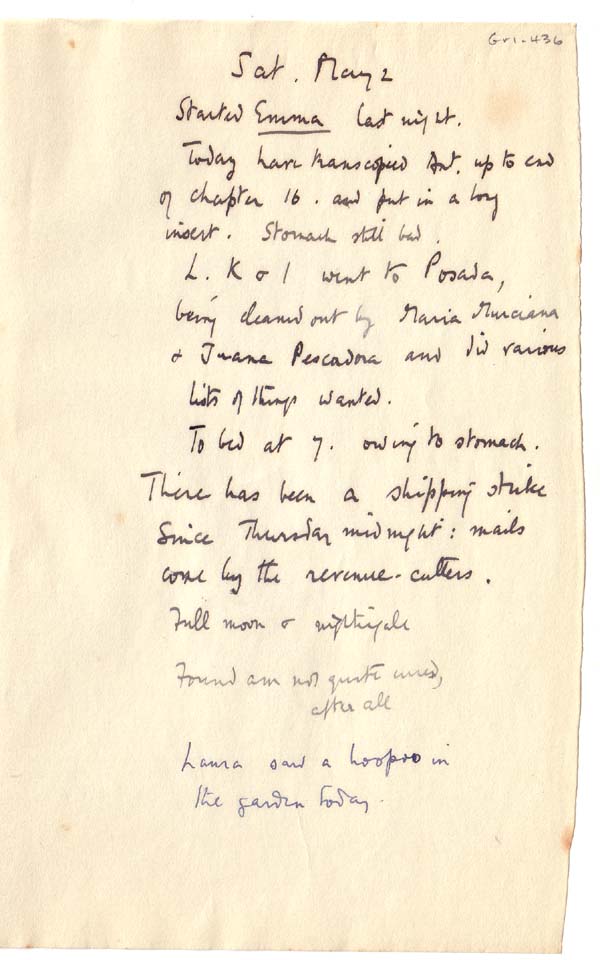 Gri-436
Sat. May 2
Started Emma last night.
Today have transcopied Ant. up to end
of chapter 16. and put in a long
insert. Stomach still bad.
L. K & I went to Posada,
being cleaned out by Maria Murciana
& Juana Pescadora and did various
lists of things wanted.
To bed at 7. owing to stomach.
There has been a shipping strike
since Thursday midnight: mails
come by the revenue-cutters.
Full moon & nightingale
Found am not quite cured,
after all
Laura saw a hoopoo in
the garden today.